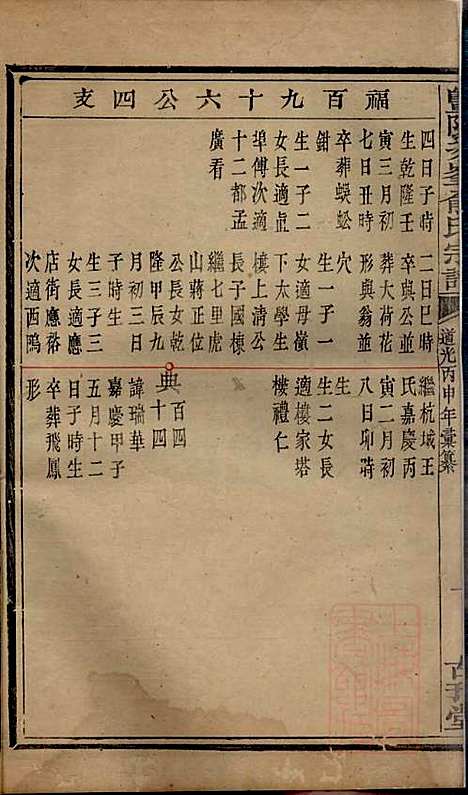 福百九十六公四支
四日子時
生乾隆壬
寅三月初
七日丑時
卒葬蜈蚣
鉗
生一子二
女長適眞
埠傅次適
十二都孟
廣看
二日巳時
卒與公並
葬大荷花
形與翁並
穴
生一子一
女適母嶺
下太學生
樓上清公
長子國棟
繼七里虎
山蔣正位
公長女乾
隆甲辰九
月初三日
子時生
生三子三
女長適應
店街應裕
次適西鴫
繼杭城王
氏嘉慶丙
寅二月初
八日卯時
生
生二女長
適樓家塔
樓禮仁
典百四十四
諱瑞華
嘉慶甲子
五月十二
日子時生
卒葬飛鳳
形
暨陽次峯俞氏宗譜
道光丙申年彙纂